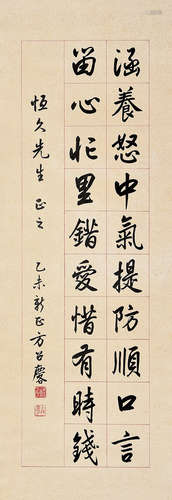 涵養怒中氣提防順口言
留心忙里錯愛惜有時錢
恆久先生 正之
乙未新正方召麐